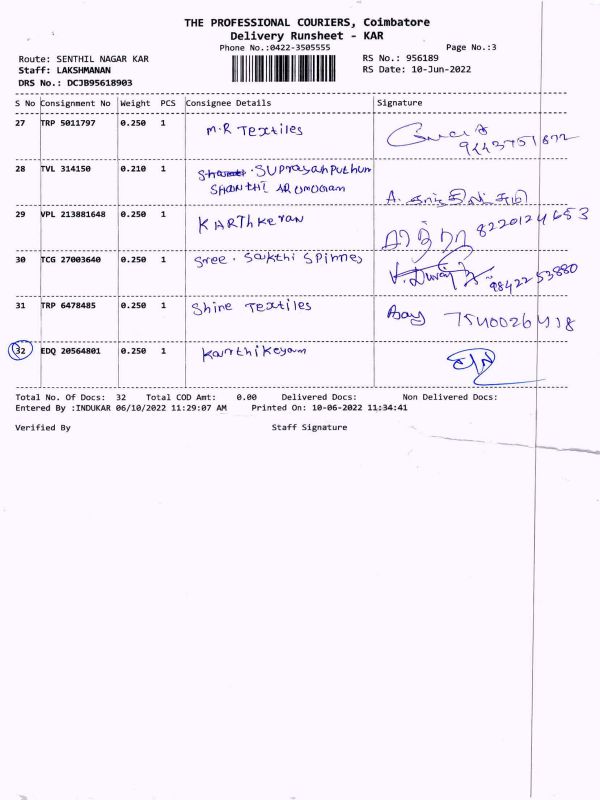 THE PROFESSIONAL COURIERS, Coimbatore
Delivery Runsheet - KAR
Phone No.:0422-3505555 Page No.:3
Route: SENTHIL NAGAR KAR RS No.: 956189
Staff: LAKSHMANAN RS Date: 10-Jun-2022
DRS No.: DCJB95618903
S No Consignment No Weight PCS Consignee Details Signature
27 TRP 5011797 0.250 1 M.R Textiles
28 TVL 314150 0.210 1
SHANTHI
29 VPL 213881648 0.250 1 KARThKeyan 8220124653
30 TCG 27003640 0.250 1 Sree. Sakthi Spinnes 9842253880
31 TRP 6478485 0.250 1 Shine Textiles 7540026418
32 EDQ 20564801 0.250 1 Karthikeyan
Total No. Of Docs: 32 Total COD Amt: 0.00 Delivered Docs: Non Delivered Docs:
Entered By :INDUKAR 06/10/2022 11:29:07 AM Printed On: 10-06-2022 11:34:41
Verified By Staff Signature